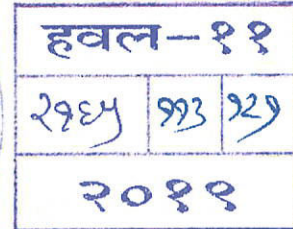 हवल-११
२१६५ ११३ १२१
२०१९